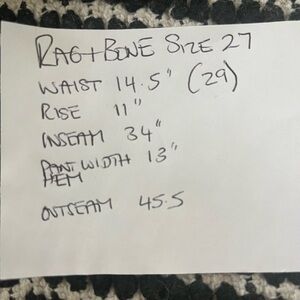 RAG+BONE SIZE 27
WAIST 14.5" (29)
RISE 11"
INSEAM 34"
PANT WIDTH 13"
HEM
OUTSEAM 45.5